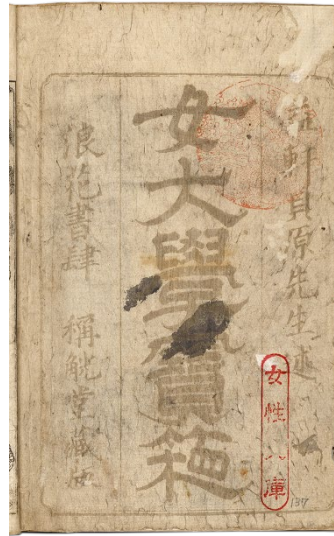 益軒貝原先生述
女大學寶箱
浪花書肆 稱觥堂藏版
女性文庫
137